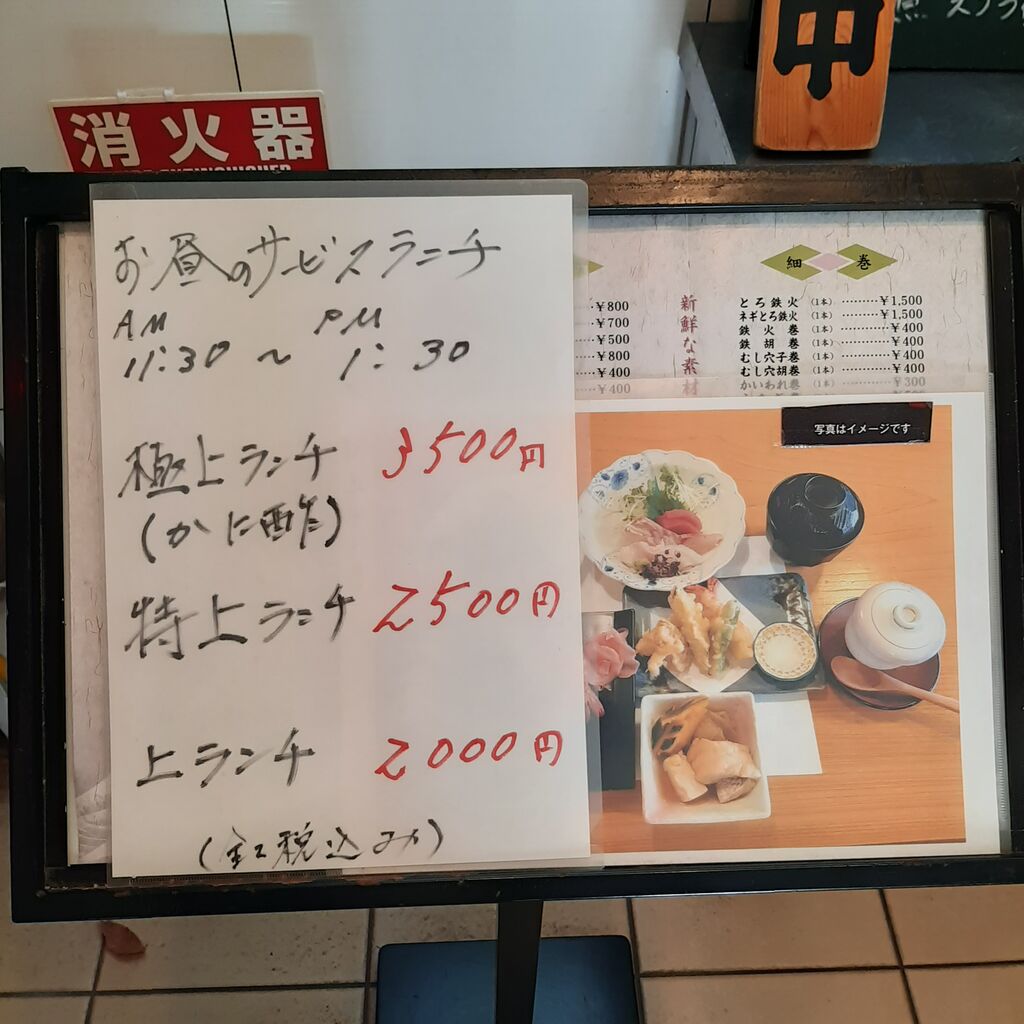 中
消火器
お昼のサービスランチ
AM PM
11:30 〜 1:30
極上ランチ 3500円
(かに酢)
特上ランチ 2500円
上ランチ 2000円
税込み)
¥800
¥700
¥500
¥800
¥400
¥400
新鮮な素材
細巻
とろ鉄火 (1本) ¥1,500
ネギとろ鉄火 (1本) ¥1,500
鉄火巻 (1本) ¥400
鉄胡巻 (1本) ¥400
むし穴子巻 (1本) ¥400
むし穴胡巻 (1本) ¥400
かいわれ巻 (1本) ¥300
写真はイメージです